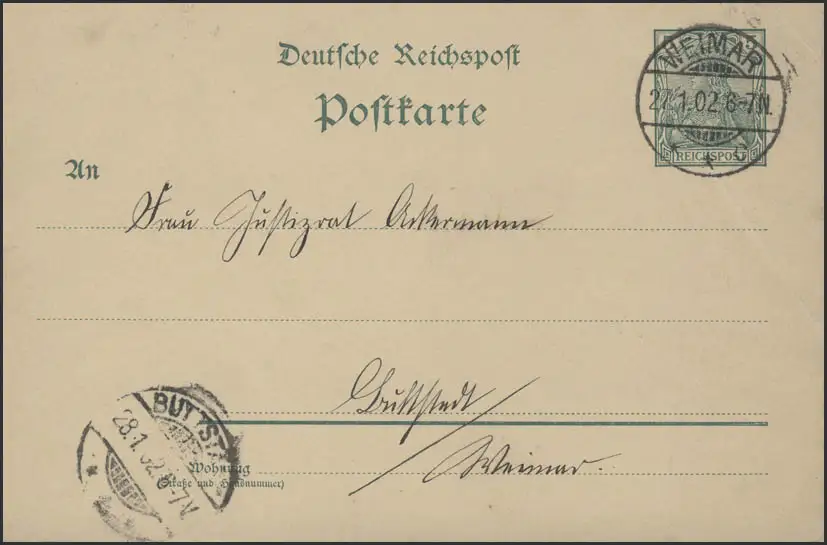 Deutsche Reichspost
Postkarte
WEIMAR
27.1.02.6-7N.
REICHSPOST
An
Frau Justizrat Ackermann
Buttstedt
Weimar.
BUTTST
28.1.02.6-7V.
Wohnung
(Straße und Hausnummer)